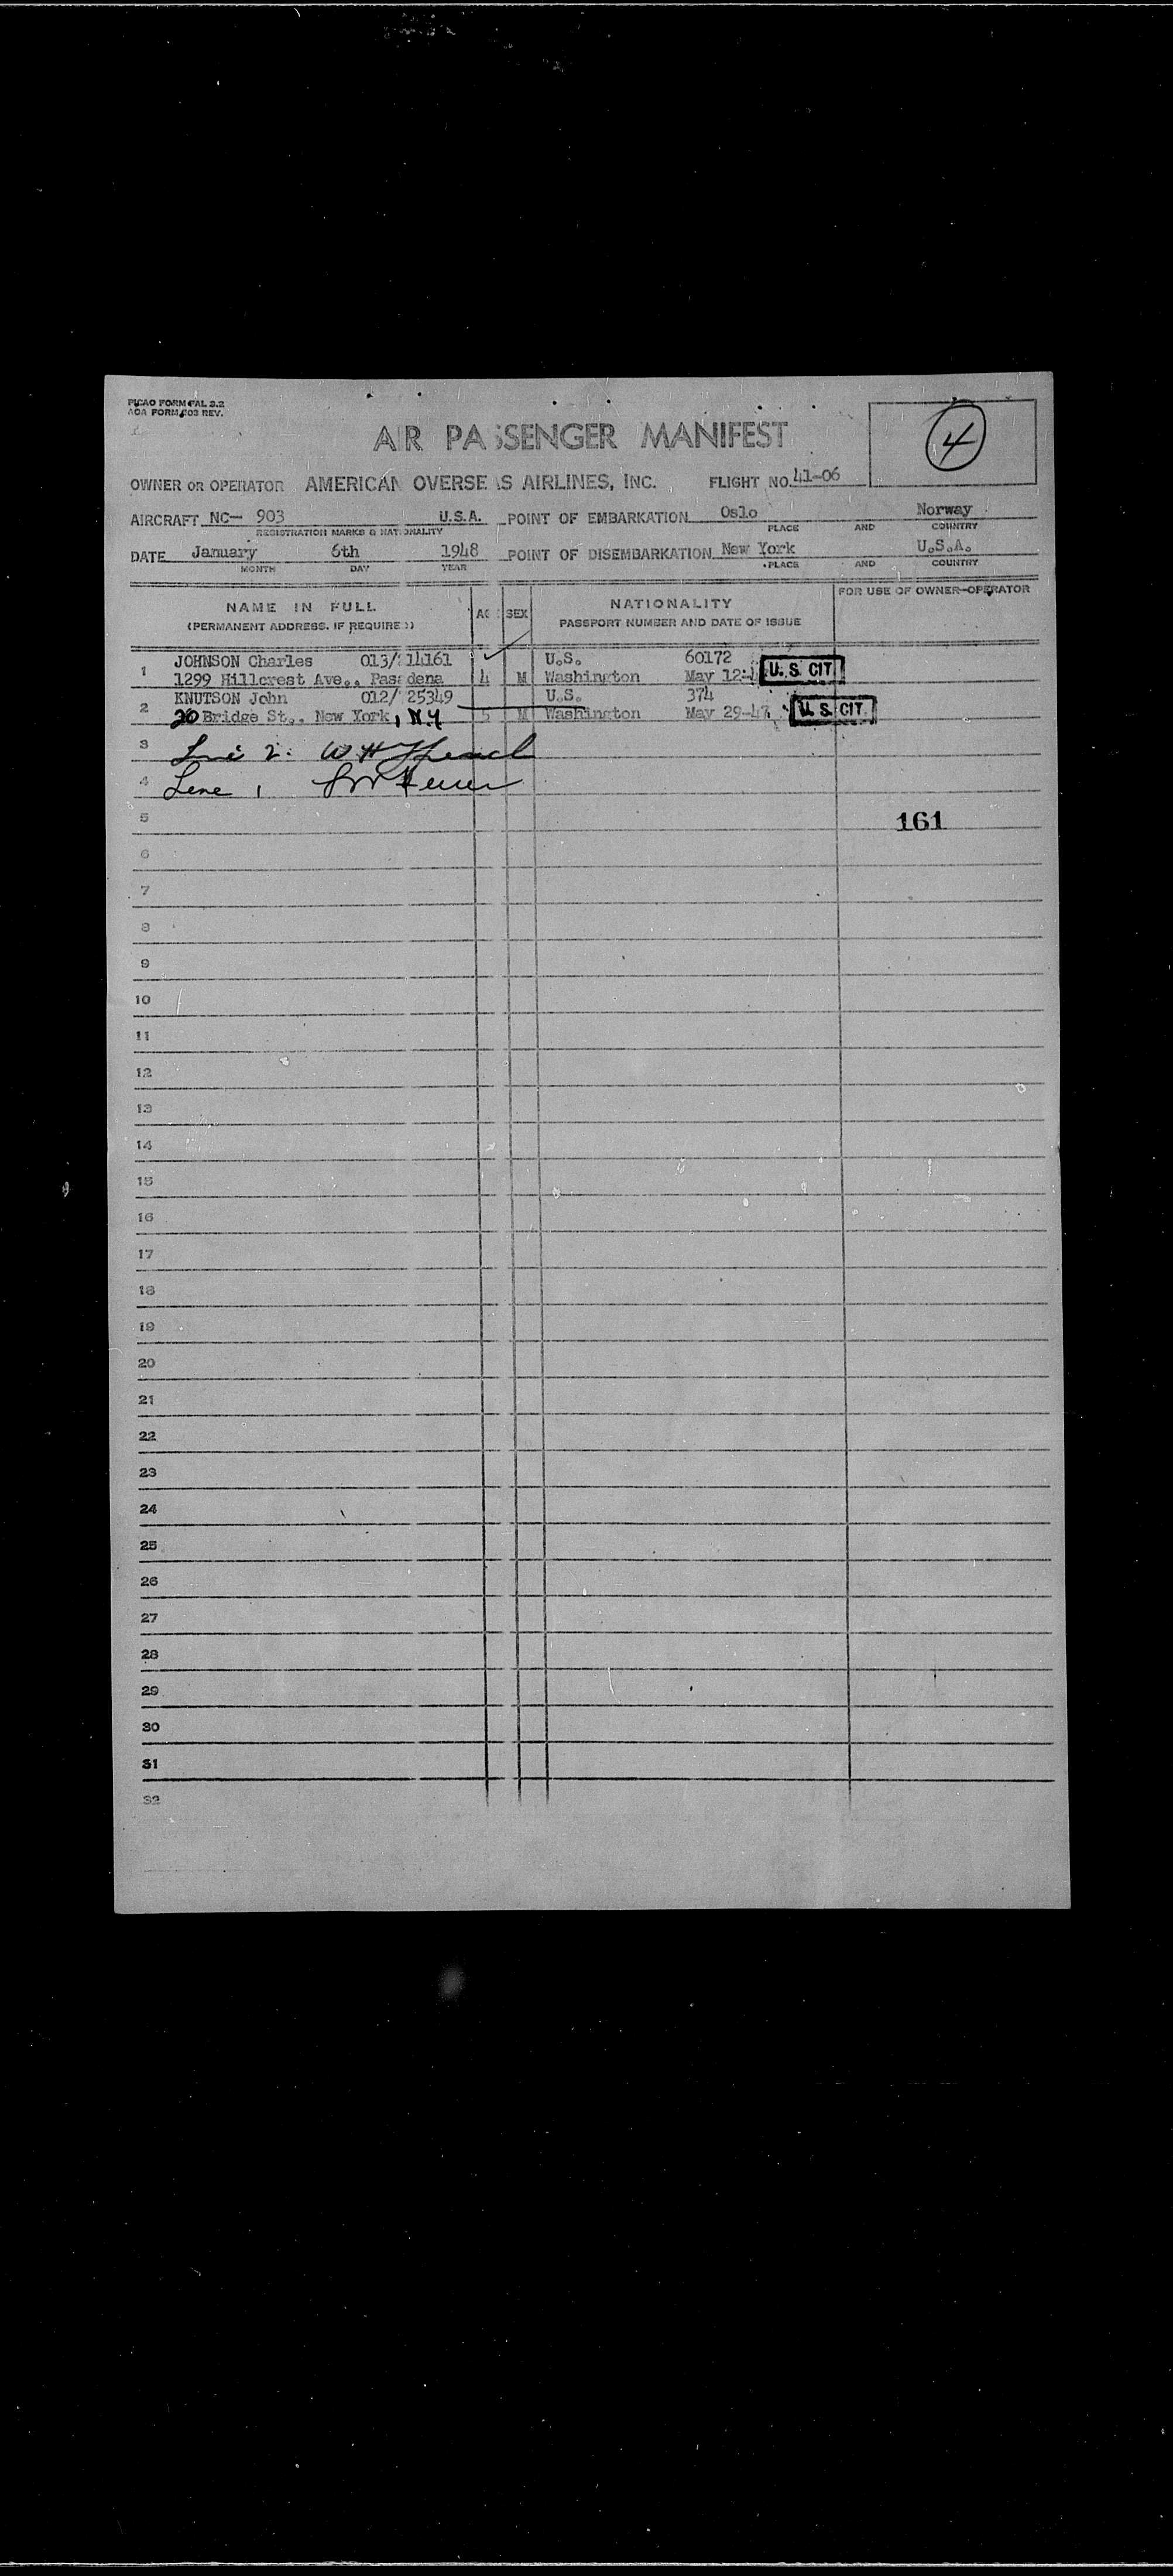 PICAO FORM FAL 3.2
AOA FORM 203 REV.
4
AIR PASSENGER MANIFEST
OWNER OR OPERATOR AMERICAN OVERSEAS AIRLINES, INC. FLIGHT NO. 41-06
AIRCRAFT NC- 903 U.S.A. POINT OF EMBARKATION Oslo Norway
REGISTRATION MARKS & NATIONALITY PLACE AND COUNTRY
DATE January 6th 1948 POINT OF DISEMBARKATION New York U.S.A.
MONTH DAY YEAR PLACE AND COUNTRY
NAME IN FULL AG SEX NATIONALITY FOR USE OF OWNER-OPERATOR
(PERMANENT ADDRESS, IF REQUIRED) PASSPORT NUMBER AND DATE OF ISSUE
1 JOHNSON Charles 013/ 14161 U.S. 60172
1299 Hillcrest Ave., Pasadena 4 M Washington May 12- U. S. CIT
2 KNUTSON John 012/ 25349 U.S. 374
20 Bridge St., New York, N.Y 5 M Washington May 29-47 U. S. CIT.
3 Line 2. W H
4 Line 1
5 161
6
7
8
9
10
11
12
13
14
15
16
17
18
19
20
21
22
23
24
25
26
27
28
29
30
31
32